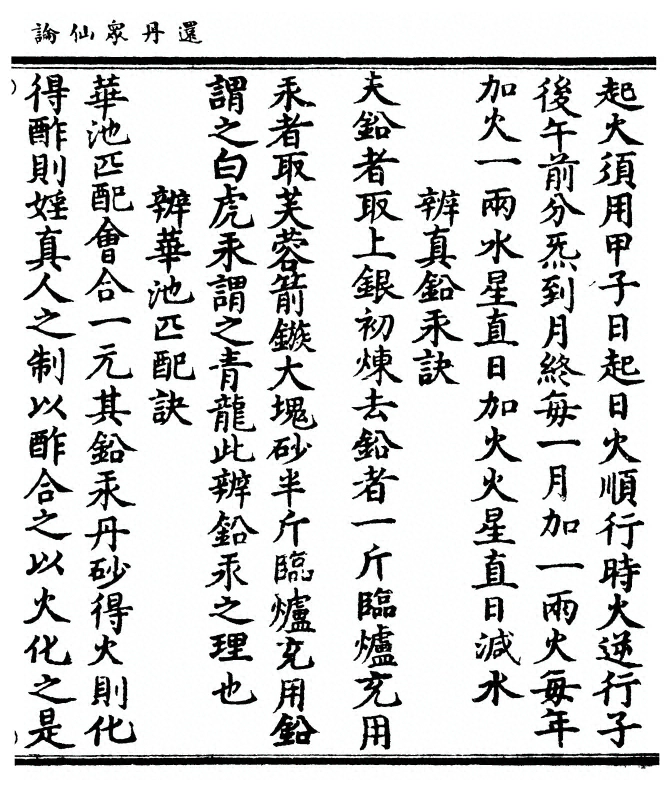 還丹眾仙論
起火須用甲子日起日火順行時火逆行子
後午前分炁到月終每一月加一兩火每年
加火一兩水星直日加火火星直日減水
辨真鉛汞訣
夫鉛者取上銀初煉去鉛者一斤臨爐充用
汞者取芙蓉箭鏃大塊砂半斤臨爐充用鉛
謂之白虎汞謂之青龍此辨鉛汞之理也
辨華池匹配訣
華池匹配會合一元其鉛汞丹砂得火則化
得酢則婬真人之制以酢合之以火化之是